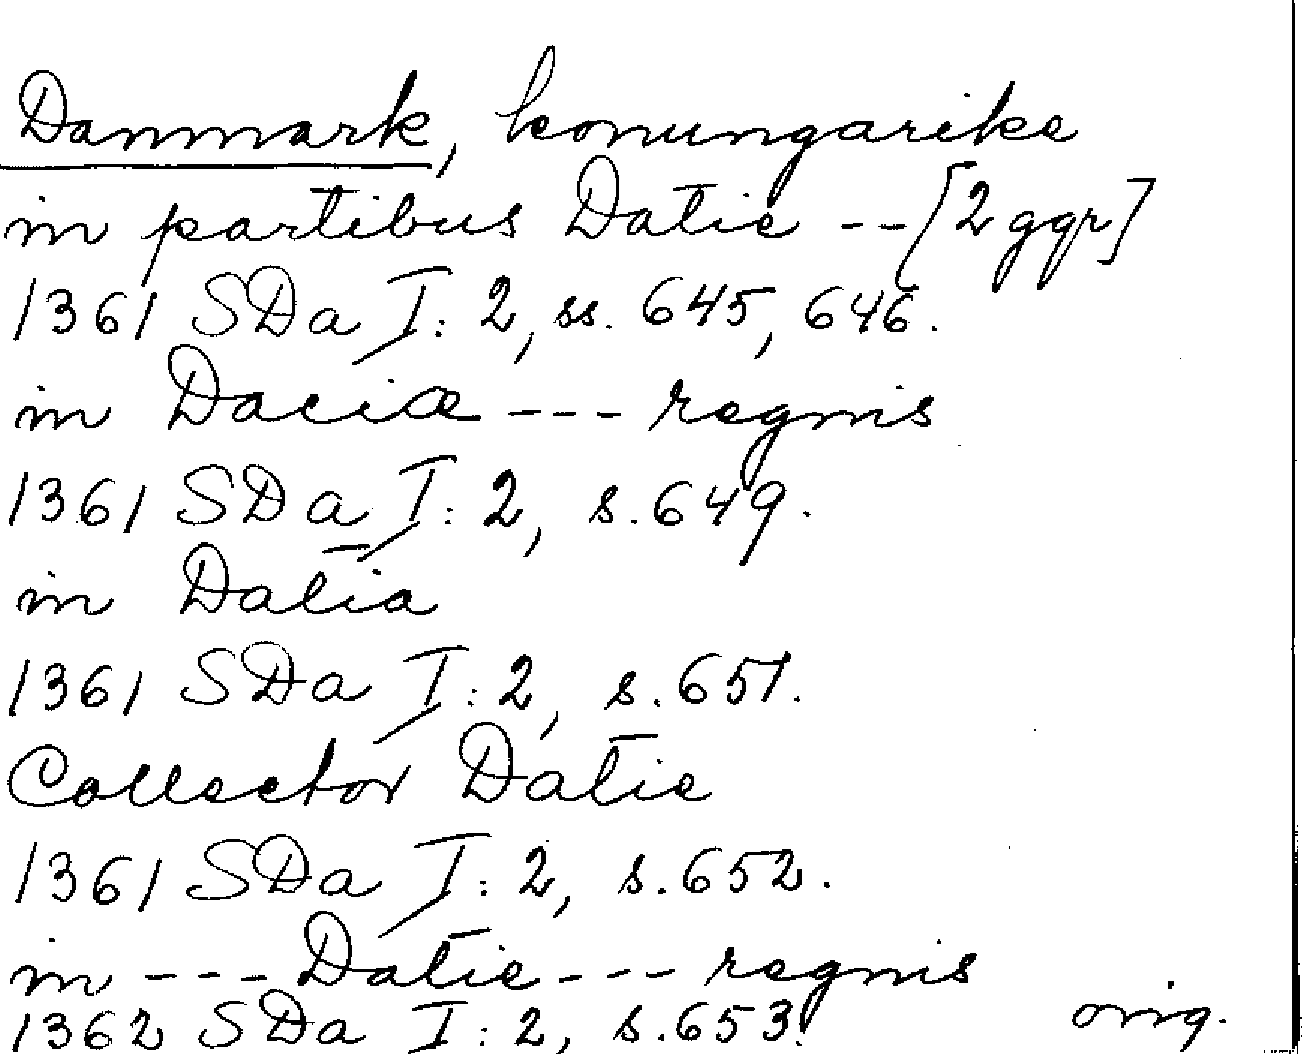 Danmark, konungarike
in partibus Datie -- [2 ggr]
1361 SDa I: 2, ss. 645, 646.
in Daciæ --- regnis
1361 SDa I: 2, s. 649.
in Datia
1361 SDa I: 2, s. 651.
Collector Datie
1361 SDa I: 2, s. 652.
in --- Datie --- regnis
1362 SDa I: 2, s. 653. orig.